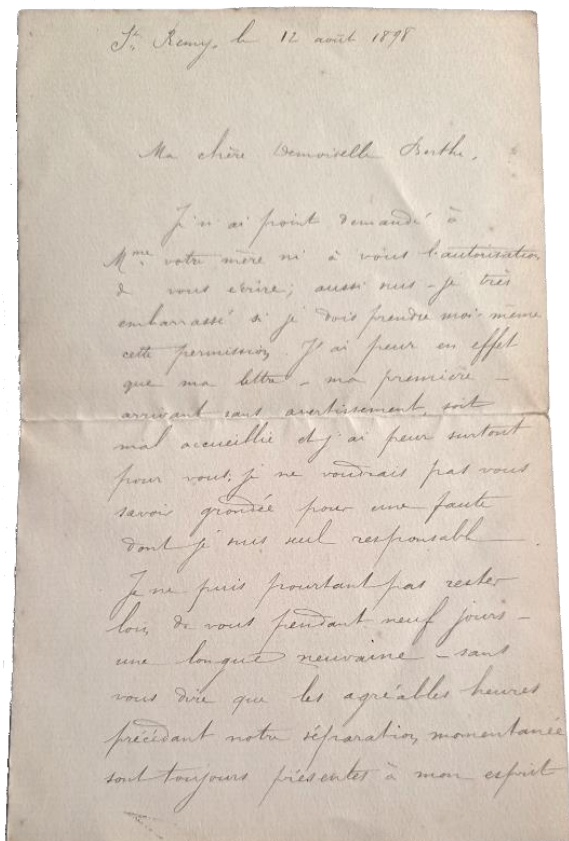 St Remy, le 12 août 1898
Ma chère Demoiselle Berthe,
Je n'ai point demandé à
Mme votre mère ni à vous l'autorisation
de vous écrire; aussi suis-je très
embarrassé si je dois prendre moi-même
cette permission. J'ai peur en effet
que ma lettre - ma première -
arrivant sans avertissement, soit
mal accueillie et j'ai peur surtout
pour vous; je ne voudrais pas vous
savoir grondée pour une faute
dont je suis seul responsable.
Je ne puis pourtant pas rester
loin de vous pendant neuf jours -
une longue neuvaine - sans
vous dire que les agréables heures
précédant notre séparation momentanée
sont toujours présentes à mon esprit